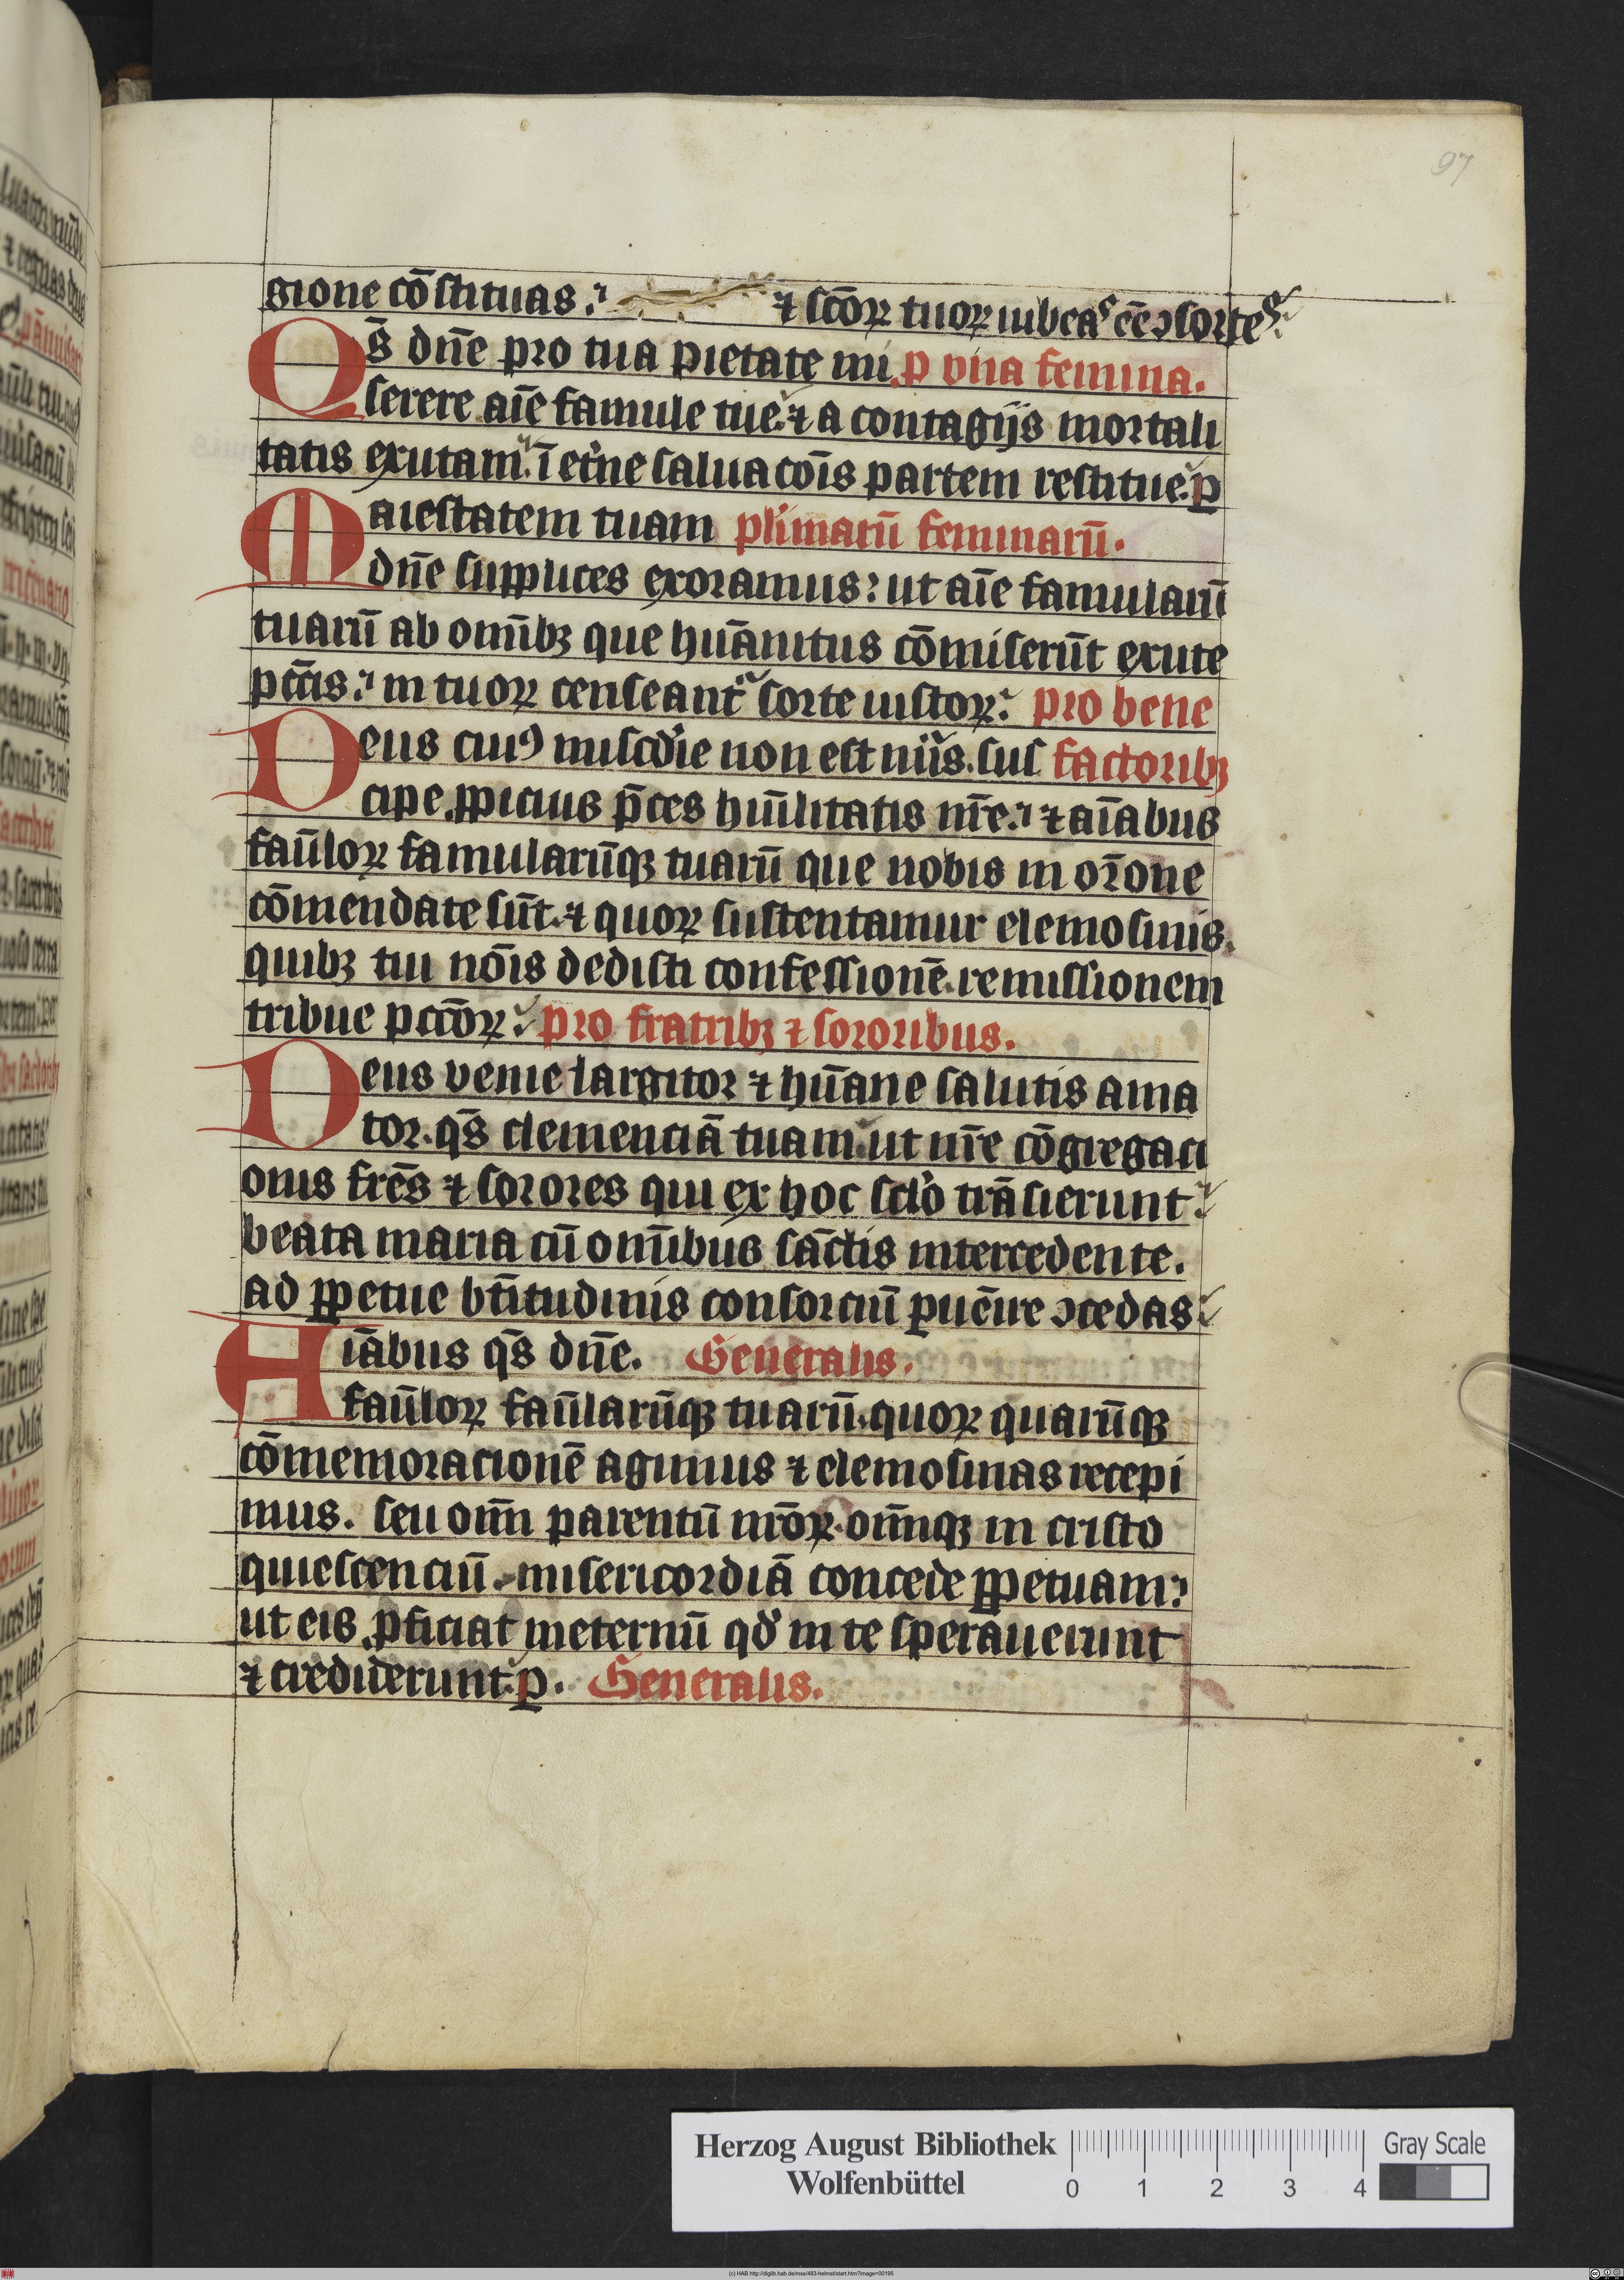 97
gione cō stituas. ⁊ scōꝝ tuoꝝ iubeas ēē ↄsortes.
Qs̄ dn̄e pro tua pietate mi p vna femina.
serere aīe famule tue. ⁊ a contagijs mortali
tatis exutam. ī et'ne saluacōīs partem restitue. p
Maiestatem tuam plīmarū feminarū.
dn̄e supplices exoramus: ut aīe famularū
tuarū ab omībꝫ que hūanitus cōmiserūt exute
pccīs. in tuoꝝ censeant᷑ sorte iustoꝝ. pro bene
Deus cuiꝰ miscdie non est nūs. sus factoribꝫ
cipe ꝓpicius p̄ces hūilitatis nr̄e. ⁊ aīabus
faūloꝝ famularūqꝫ tuarū que nobis in or̄one
cōmendate sūt. ⁊ quoꝝ sustentamur elemosinis.
quibꝫ tui nōīs dedisti confessionē. remissionem
tribue pccōꝝ. pro fratribꝫ ⁊ sororibus.
Deus venie largitor ⁊ hūane salutis ama
tor. qs̄ clemenciā tuam. ut nr̄e cōgregaci
onis frēs ⁊ sorores qui ex hoc sclo trāsierunt.
beata maria cū omībus sāctis intercedente.
ad ꝑpetue btītudinis consorciū ꝑuēire ↄcedas.
Aīabus qs̄ dn̄e. Generalis.
faūloꝝ faūlarūqꝫ tuarū. quoꝝ quarūqꝫ
cōmemoracionē agimus ⁊ elemosinas recepi
mus. seu omī parentū nr̄oꝝ. omīqꝫ in cristo
quiescenciū. misericordiā concede ꝑpetuam.
ut eis ꝓficiat ineternū qd in te sperauerunt
⁊ crediderunt. p. Generalis.
Herzog August Bibliothek
Wolfenbüttel
0 1 2 3 4
Gray Scale
(c) HAB http://diglib.hab.de/mss/483-helmst/start.htm?image=00195